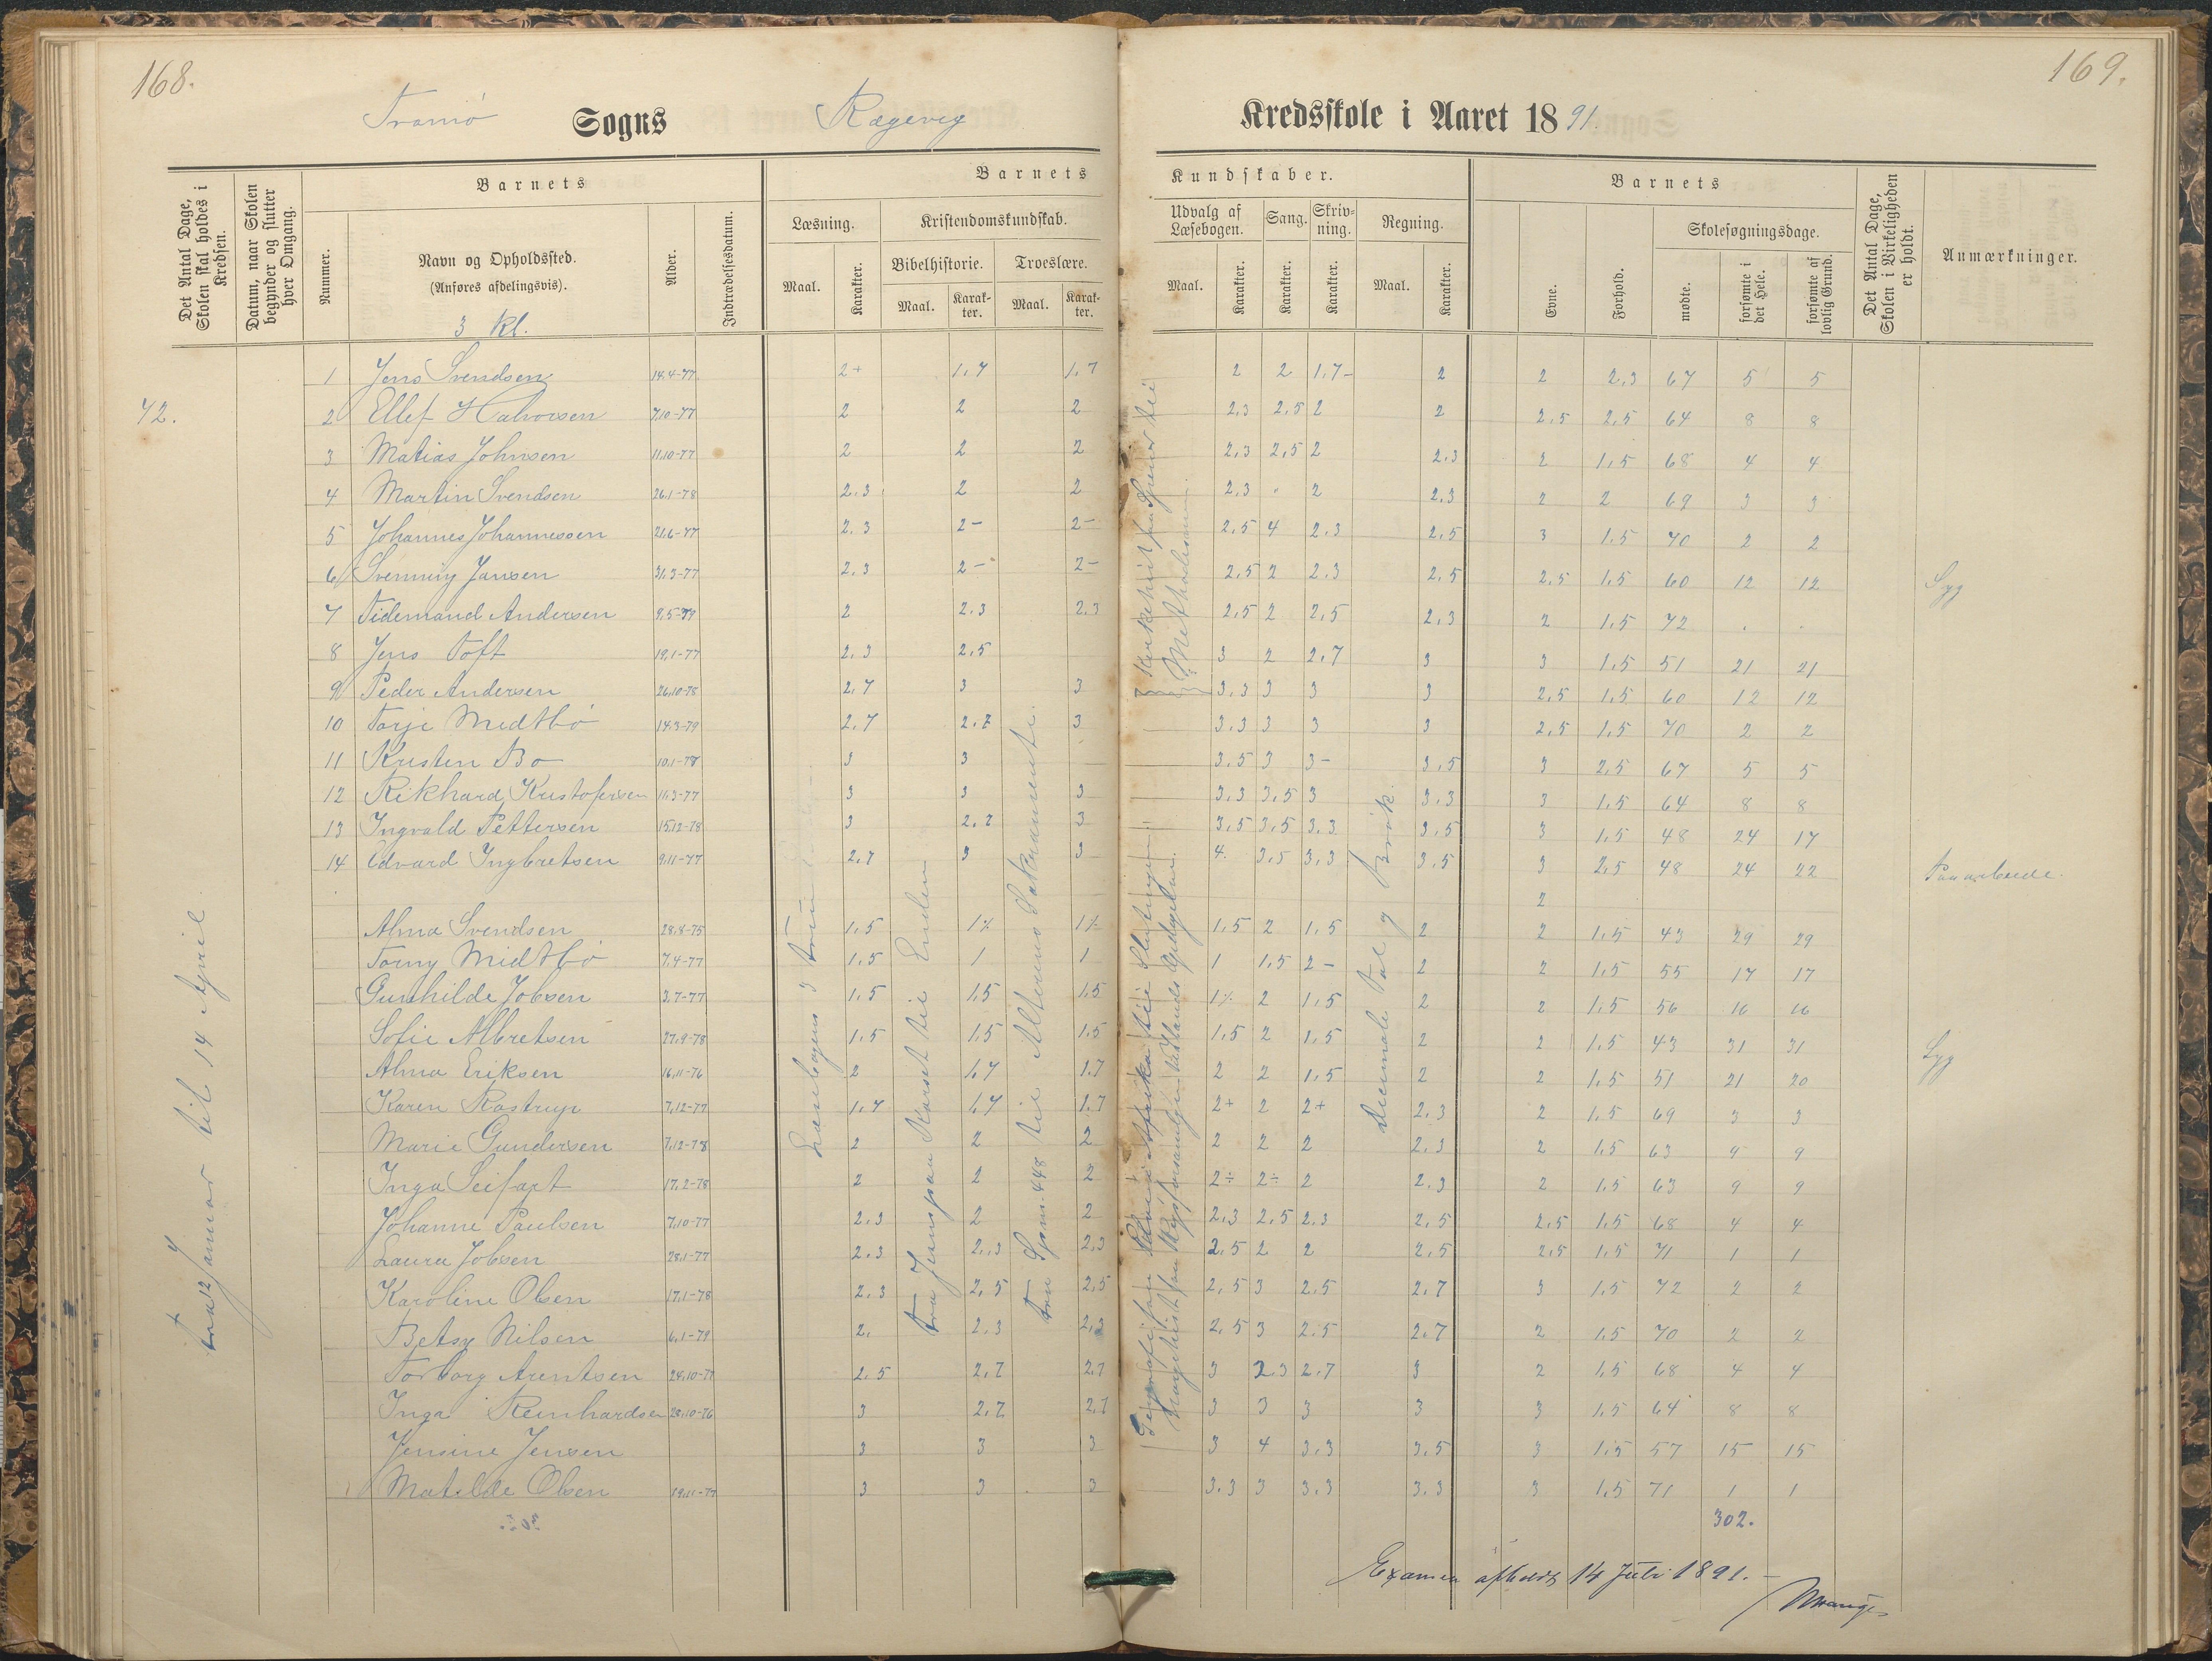 168.
169.
Tromø Sogns Rægevig Kredsskole i Aaret 1891.
Det Antal Dage, Skolen skal holdes i Kredsen.
Datum, naar Skolen begynder og slutter hver Omgang.
Barnets
Nummer.
Navn og Opholdssted.
(Anføres afdelingsvis).
3 Kl.
Alder.
Indtrædelsesdatum.
Barnets Kundskaber.
Læsning.
Maal.
Karakter.
Kristendomskundskab.
Bibelhistorie.
Maal.
Karakter.
Troeslære.
Maal.
Karakter.
Udvalg af Læsebogen.
Maal.
Karakter.
Sang.
Karakter.
Skrivning.
Karakter.
Regning.
Maal.
Karakter.
Barnets
Evne.
Forhold.
Skolesøgningsdage.
mødte.
forsømte i det Hele.
forsømte af lovlig Grund.
Det Antal Dage, Skolen i Virkeligheden er holdt.
Anmærkninger.
72.
fra 12 Januar til 14 April
1 Jens Svendsen 14.4-77 2+ 1,7 1,7 2 2 1,7- 2 2 2,3 67 5 5
2 Ellef Halvorsen 7.10-77 2 2 2 2,3 2,5 2 2 2,5 2,5 64 8 8
3 Matias Johnsen 11.10-77 2 2 2 2,3 2,5 2 2,3 2 1,5 68 4 4
4 Martin Svendsen 26.1-78 2.3 2 2 2.3 . 2 2.3 2 2 69 3 3
5 Johannes Johannessen 21.6-77 2.3 2- 2- 2,5 4 2,3 2,5 3 1.5 70 2 2
6 Svenning Jansen 31.3-77 2.3 2- 2- 2,5 2 2.3 2,5 2,5 1,5 60 12 12 Syg
7 Tidemand Andersen 9.5-79 2 2.3 2.3 2,5 2 2,5 2,3 2 1,5 72 . .
8 Jens Toft 19.1-77 2.3 2,5 3 2 2,7 3 3 1,5 51 21 21
9 Peder Andersen 26.10-78 2,7 3 3 3,3 3 3 3 2,5 1,5 60 12 12
10 Torje Midtbö 14.3-79 2,7 2,7 3 3,3 3 3 3 2,5 1,5 70 2 2
11 Kristen Bo 10.1-78 3 3 3.5 3 3- 3,5 3 2,5 67 5 5
12 Rikhard Kristofersen 11.3-77 3 3 3 3,3 3,5 3 3,3 3 1,5 64 8 8
13 Ingvald Pettersen 15.12-78 3 2,7 3 3,5 3,5 3,3 3,5 3 1,5 48 24 17
14 Edvard Ingbretsen 9.11-77 2,7 3 3 4. 3,5 3,3 3,5 3 2,5 48 24 22 Paa arbeide.
2
Alma Svendsen 28.8-75 1,5 1% 1% 1,5 2 1,5 2 2 1,5 43 29 29
Torny Midtbö 7.4-77 1,5 1 1 1 1,5 2- 2 2 1,5 55 17 17
Gunhilde Jobsen 3.7-77 1,5 1,5 1,5 1% 2 1,5 2 2 1,5 56 16 16
Sofie Albretsen 27.9-78 1,5 1,5 1,5 1,5 2 1,5 2 2 1,5 43 31 31 Syg
Alma Eriksen 16.11-76 2 1,7 1.7 2 2 1,5 2 2 1,5 51 21 20
Karen Rostrup 7.12-77 1,7 1,7 1.7 2+ 2 2+ 2,3 2 1,5 69 3 3
Marie Gundersen 7.12-78 2 2 2 2 2 2 2.3 2 1,5 63 9 9
Inga Seifart 17.2-78 2 2 2 2÷ 2÷ 2 2.3 2 1,5 63 9 9
Johanne Paulsen 7.10-77 2.3 2 2 2,3 2,5 2,3 2,5 2,5 1,5 68 4 4
Laura Jobsen 28.1-77 2.3 2,3 2,3 2,5 2 2 2,5 2,5 1,5 71 1 1
Karoline Olsen 17.1-78 2.3 2,5 2,5 2,5 3 2,5 2,7 3 1,5 72 2 2
Betsy Nilsen 6.1-79 2. 2.3 2,3 2,5 3 2.5 2,7 2 1,5 70 2 2
Torborg Arentsen 24.10-77 2.5 2,7 2,7 3 2.3 2,7 3 2 1,5 68 4 4
Inga Reinhardsen 28.10-76 3 2,7 2,7 3 3 3 3 3 1,5 64 8 8
Jensine Jensen 3 3 3 3 4 3.3 3,5 3 1,5 57 15 15
Matilde Olsen 19.11-77 3 3 3 3.3 3 3.3 3.3 3 1,5 71 1 1
302.
Læsebogens 3
fra Jesus paa Korset til Enden
fra Spm. 448 til Alterens Sakramente.
Decimaltal og Brök.
Examen afholdt 14 Juli 1891. -